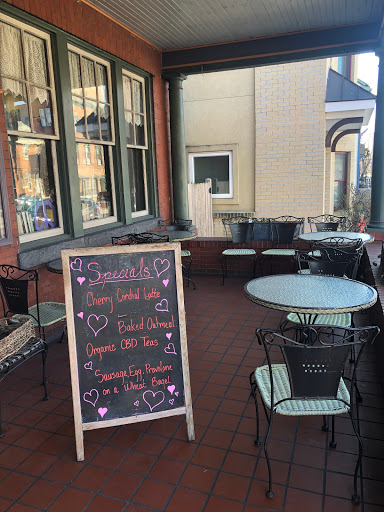 Specials
Cherry Cordial Latte
Baked Oatmeal
Organic CBD Teas
Sausage, Egg, Provolone
on a Wheat Bagel